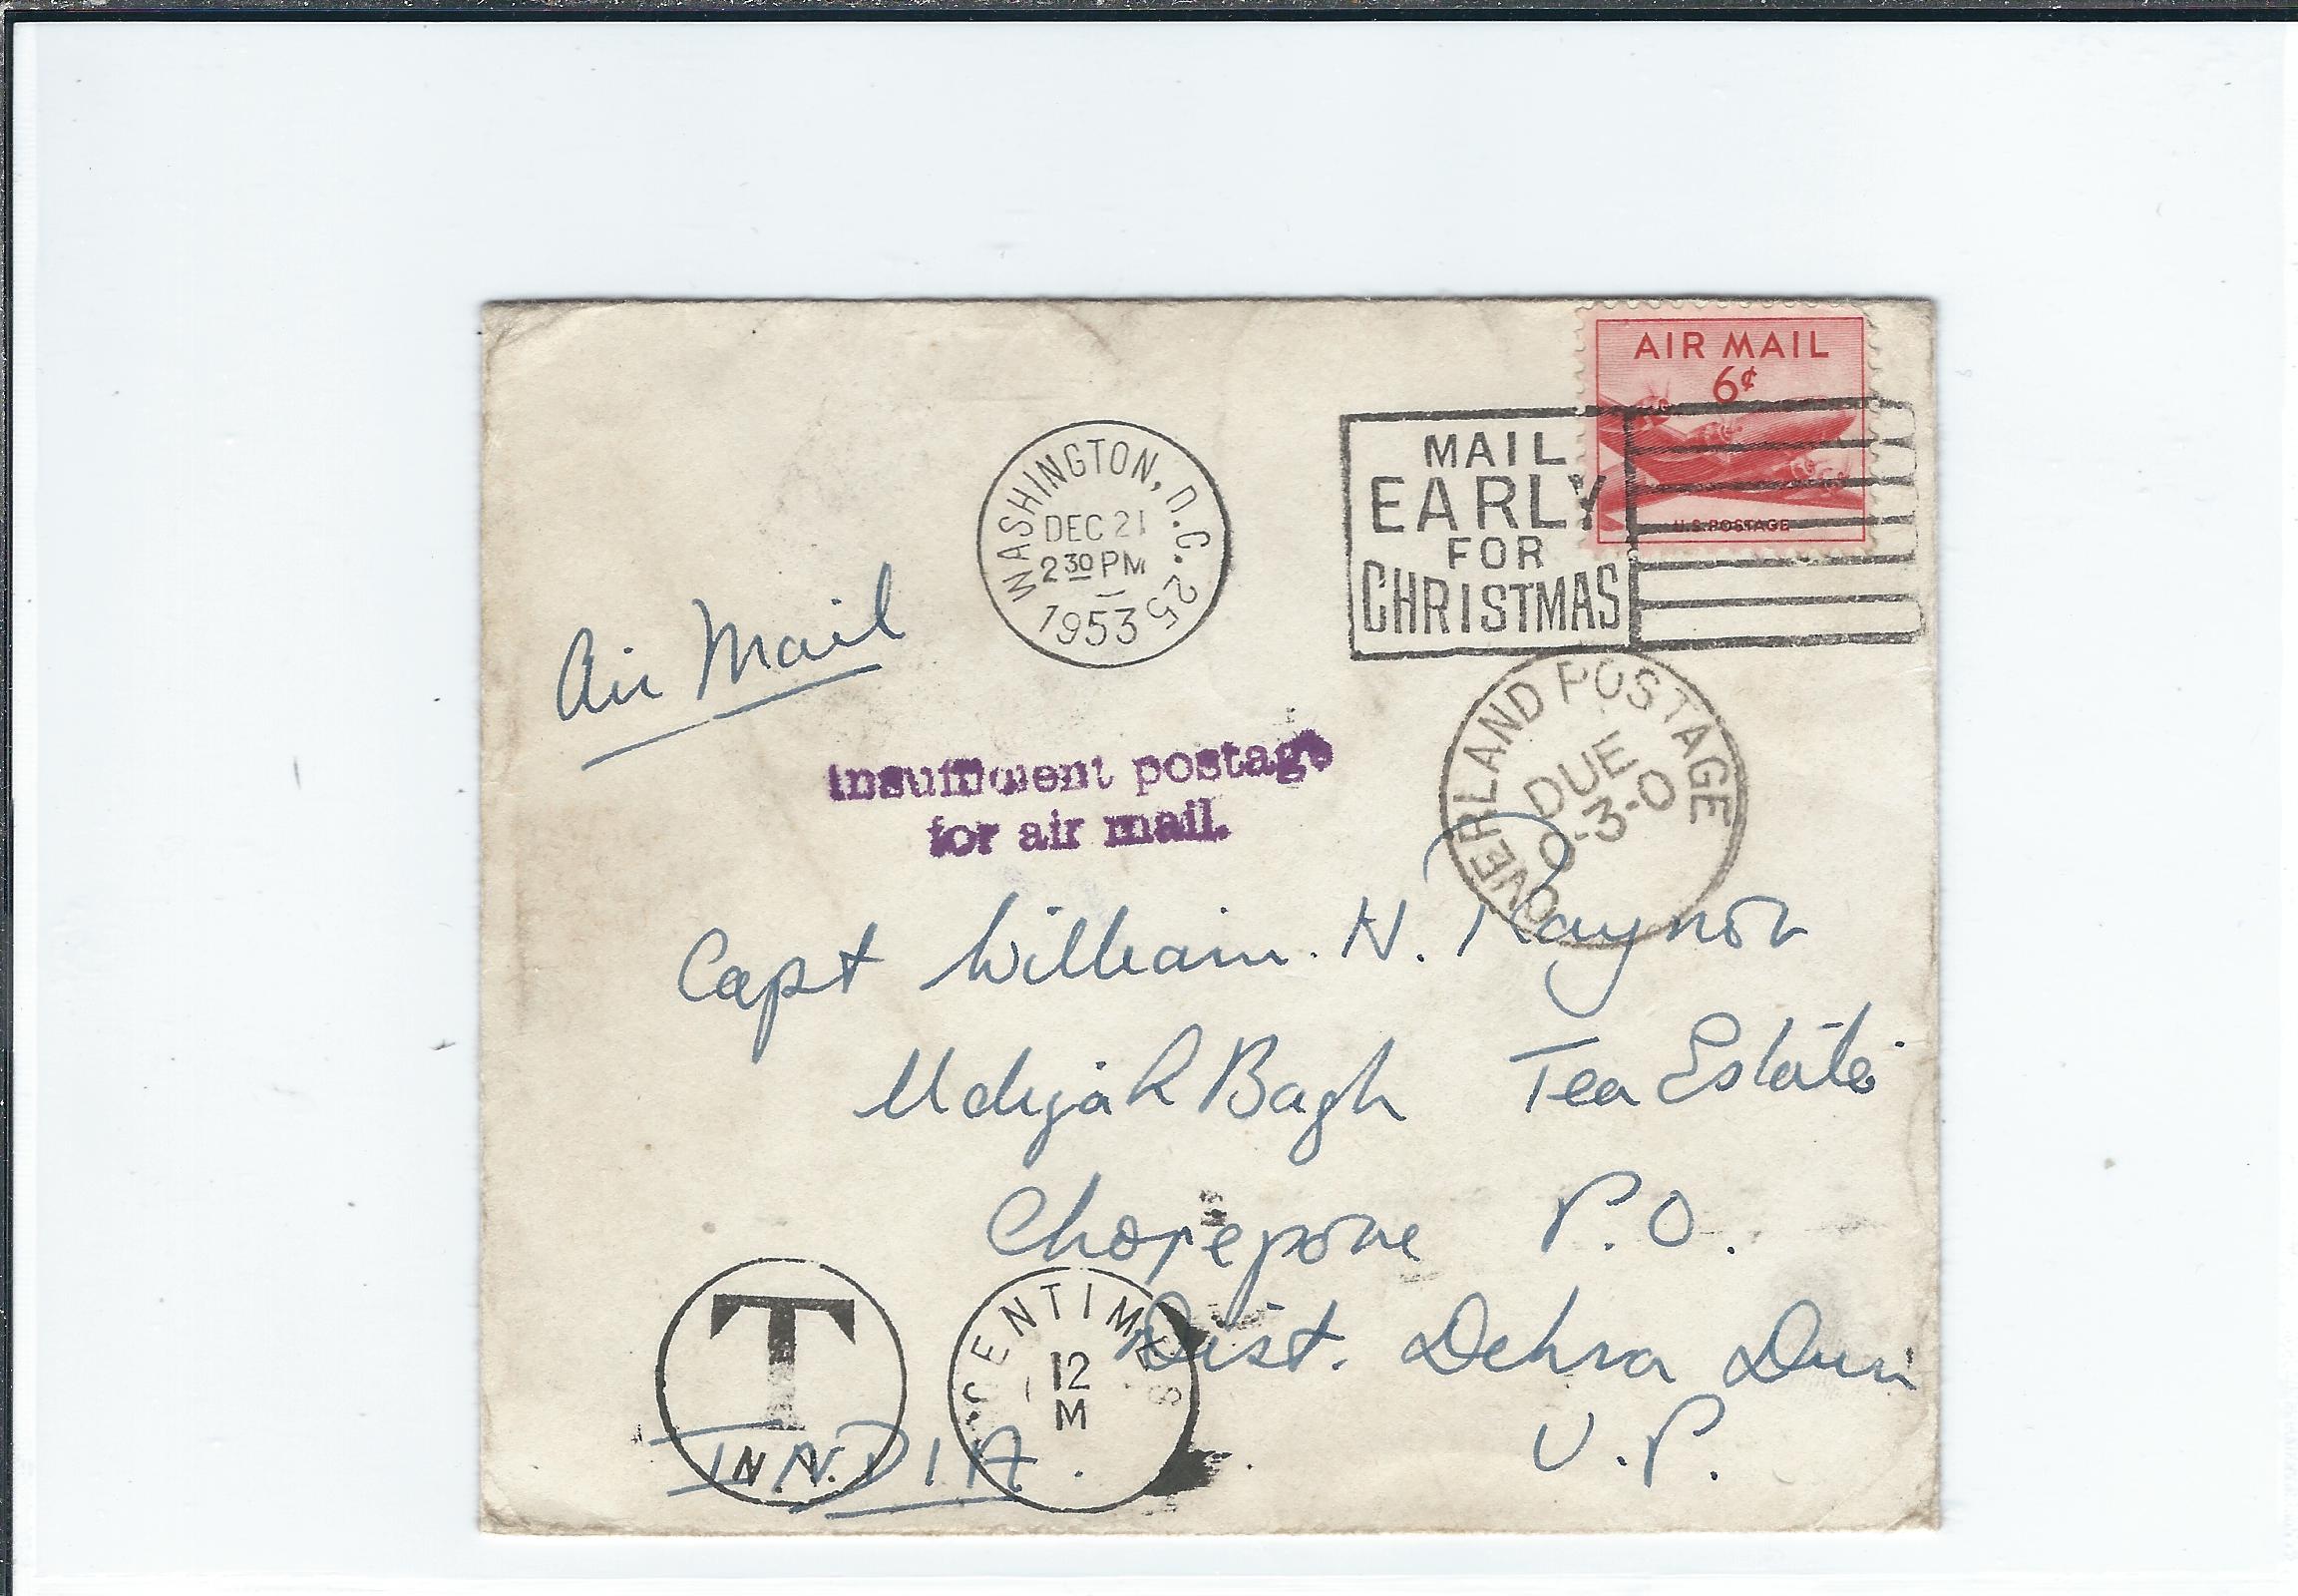 AIR MAIL
6¢
U.S. POSTAGE
WASHINGTON, D.C. 25
DEC 21
2 30 PM
1953
MAIL
EARLY
FOR
CHRISTMAS
Air Mail
OVERLAND POSTAGE
DUE
0-3-0
Insufficient postage
for air mail.
Capt William. H. Raynor
Bagh Tea Estate
P.O.
Dist. Dehra Dun
U.P.
INDIA.
T
N.Y.
CENTIMES
12
M